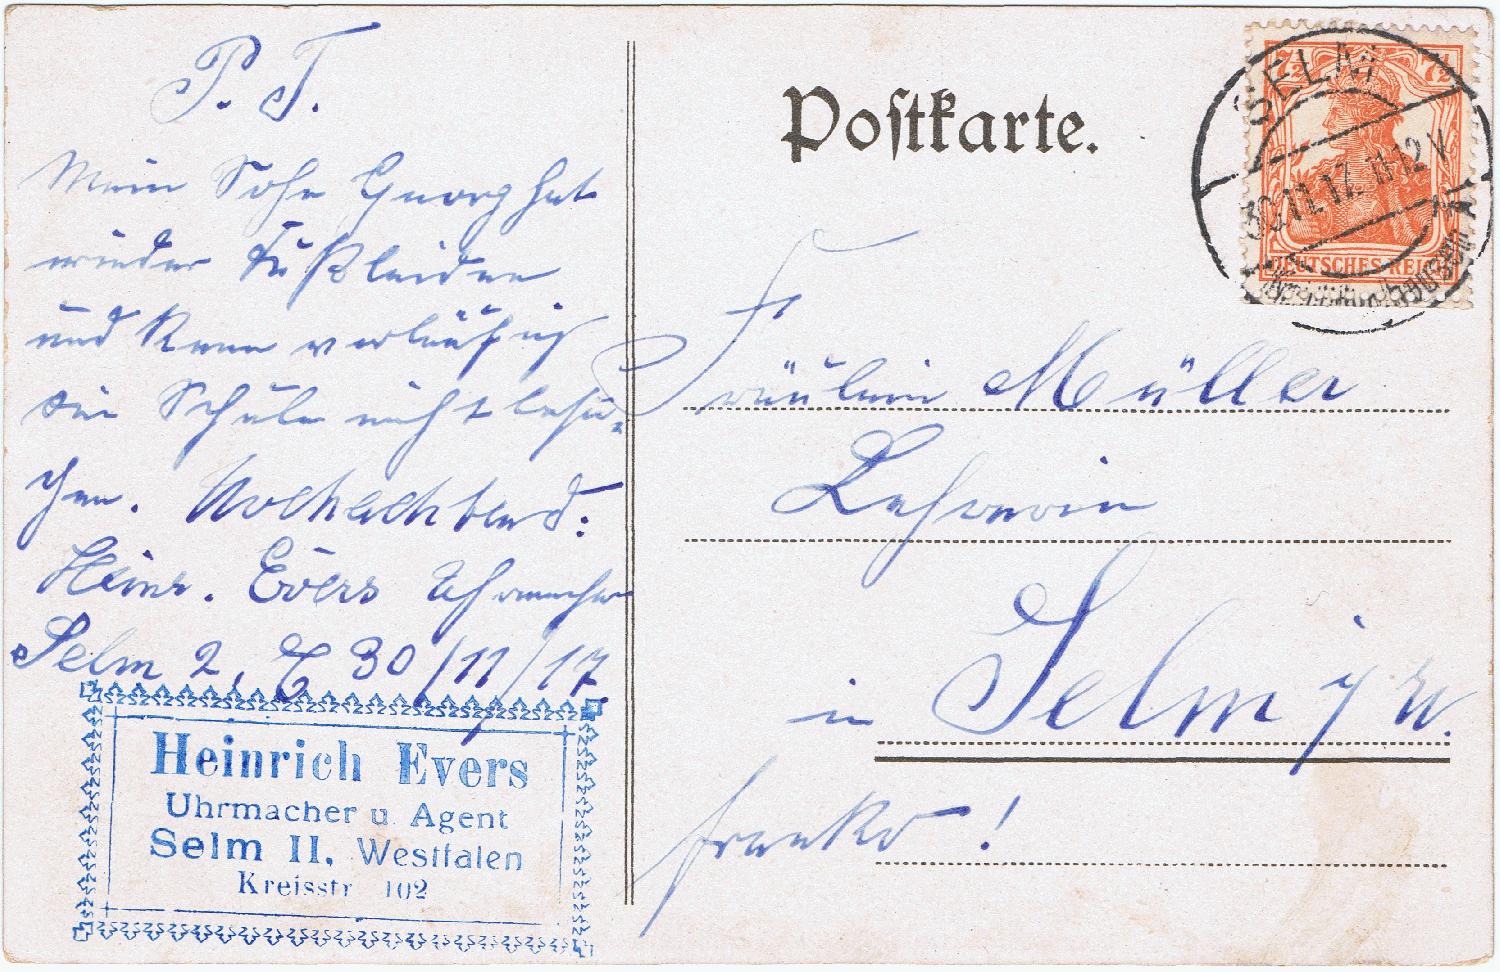 P. T.
Mein Sohn Georg hat
wieder Fußleiden
und kann vorläufig
die Schule nicht besu-
chen. Hochachtend:
Heinr. Evers Uhrmacher
Selm 2, 30/11/17.
Heinrich Evers
Uhrmacher u. Agent
Selm II, Westfalen
Kreisstr 102
Postkarte.
SELM
30.11.17. 11-12 V
7½ 7½
DEUTSCHES REICH
Fräulein Müller
Lehrerin
in Selm i/W.
franko!